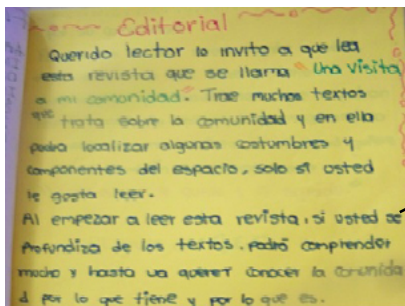 Editorial
Querido lector lo invito a que lea
esta revista que se llama "Una visita
a mi comonidad." Trae muchos textos
que trata sobre la comunidad y en ella
podra localizar algunas costumbres y
componentes del espacio, solo si osted
le gosta leer.
Al empezar a leer esta revista, si osted se
Profundiza de los textos. podrá comprender
mucho y hasta va querer conocer la comunida
d por lo que tiene y por lo que es.